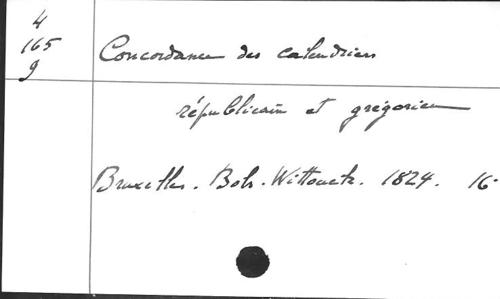 4
165
9
Concordance des calendriers
républicain et grégorien
Bruxelles. Bols-Wittouck. 1824. 16°